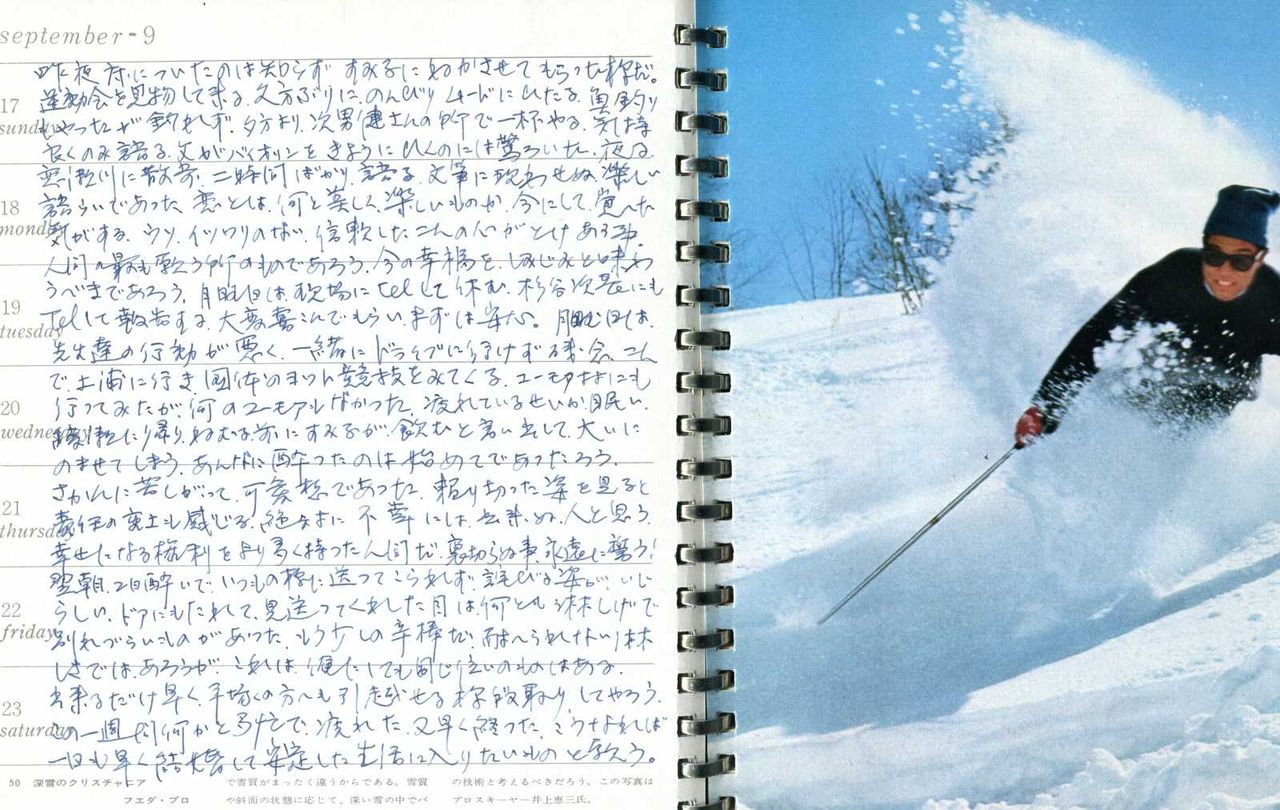 september-9
昨夜床についたのは知らず すみ子にねかさせてもらった様だ。
17
運動会を見物して来る。久方ぶりに のんびりムードにひたる。魚釣り
sunday
もやったが釣れず、夕方より、次男健さんの所で一杯やる。気持
良くのみ語る。父がバイオリンをきように ひくのには驚ろいた。夜る
川に散歩、二時間ばかり、語る。文筆に現わせぬ楽しい
18
語らいであった、恋とは、何と美しく、楽しいものか、今にして、覚へた
monday
気がする、ウソ、イツワリのない、信頼した二人の心がとけあう事、
人間の最も歓う所のものであろう、今の幸福を、しみじみと味わ
うべきであろう、月曜日は、現場にtelして休む、杉谷次長にも
19
telして報告する、大変喜こんでもらい、まずは安心。月曜日は、
tuesday
先生達の行動が悪く、一緒にドライブに行けず残念、二人
で、土浦に行き国体のヨット競技をみてくる、ユーモア村にも
20
行ってみたが、何のユーモアもなかった、疲れているせいか眠い、
wednesday
に帰り、ねむる前にすみ子が、飲むと言い出して、大いに
のませてしまう、あんなに酔ったのは始めてであったろう、
さかんに苦しがって、可哀想であった、頼り切った姿を見ると
21
責任の重さも感じる、絶体に不幸には、出来ぬ、人と思う、
thursday
幸せになる権利をより多く持った人間だ、裏切らぬ事、永遠に誓う!
翌朝、2日酔いで、いつもの様に送ってこられず、詫びる姿が、いじ
22
らしい、ドアにもたれて、見送ってくれした目は、何とも淋しげで
friday
別れづらいものがあった、もう少しの辛棒だ、耐へられない淋
しさでは、あろうが、これは、俺にしても同じ位いのものはある、
出来るだけ早く、平塚の方へも引越せる様段取り、してやろう、
23
この一週間何かと多忙で、疲れた、又早く終った、こうなれば
saturday
一日も早く結婚して安定した生活に入りたいものと歓う。
50 深雪のクリスチャニア
フエダ・プロ
で雪質がまったく違うからである。雪質
や斜面の状態に応じて、深い雪の中でベ
の技術と考えるべきだろう。この写真は
プロスキーヤー井上恵三氏。